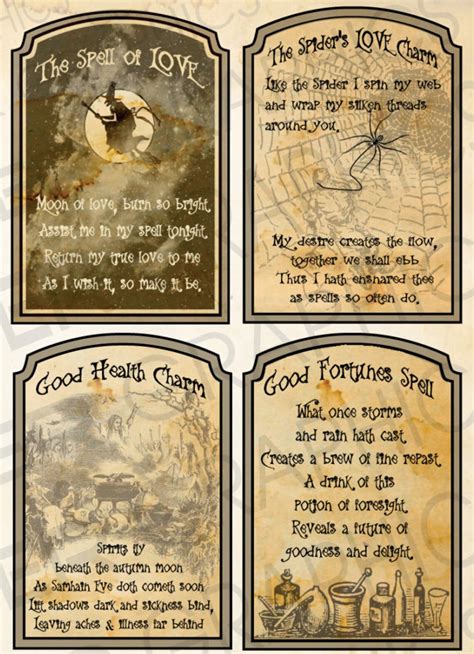 The Spell of LOVE
Moon of love, burn so bright
Assist me in my spell tonight
Return my true love to me
As I wish it, so make it be.
The Spider's LOVE Charm
Like the Spider I spin my web
and wrap my silken threads
around you.
My desire creates the flow,
together we shall ebb
Thus I hath ensnared thee
as spells so often do.
Good Health Charm
Spirits fly
beneath the autumn moon
As Samhain Eve doth cometh soon
Lift shadows dark and sickness bind,
Leaving aches & illness far behind
Good Fortunes Spell
What once storms
and rain hath cast
Creates a brew of fine repast
A drink of this
potion of foresight
Reveals a future of
goodness and delight.